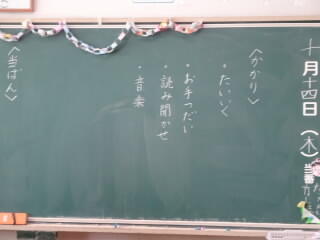 十月十四日（木）
〈かかり〉
・たいいく
・お手つだい
・読み聞かせ
・音楽
〈当ばん〉